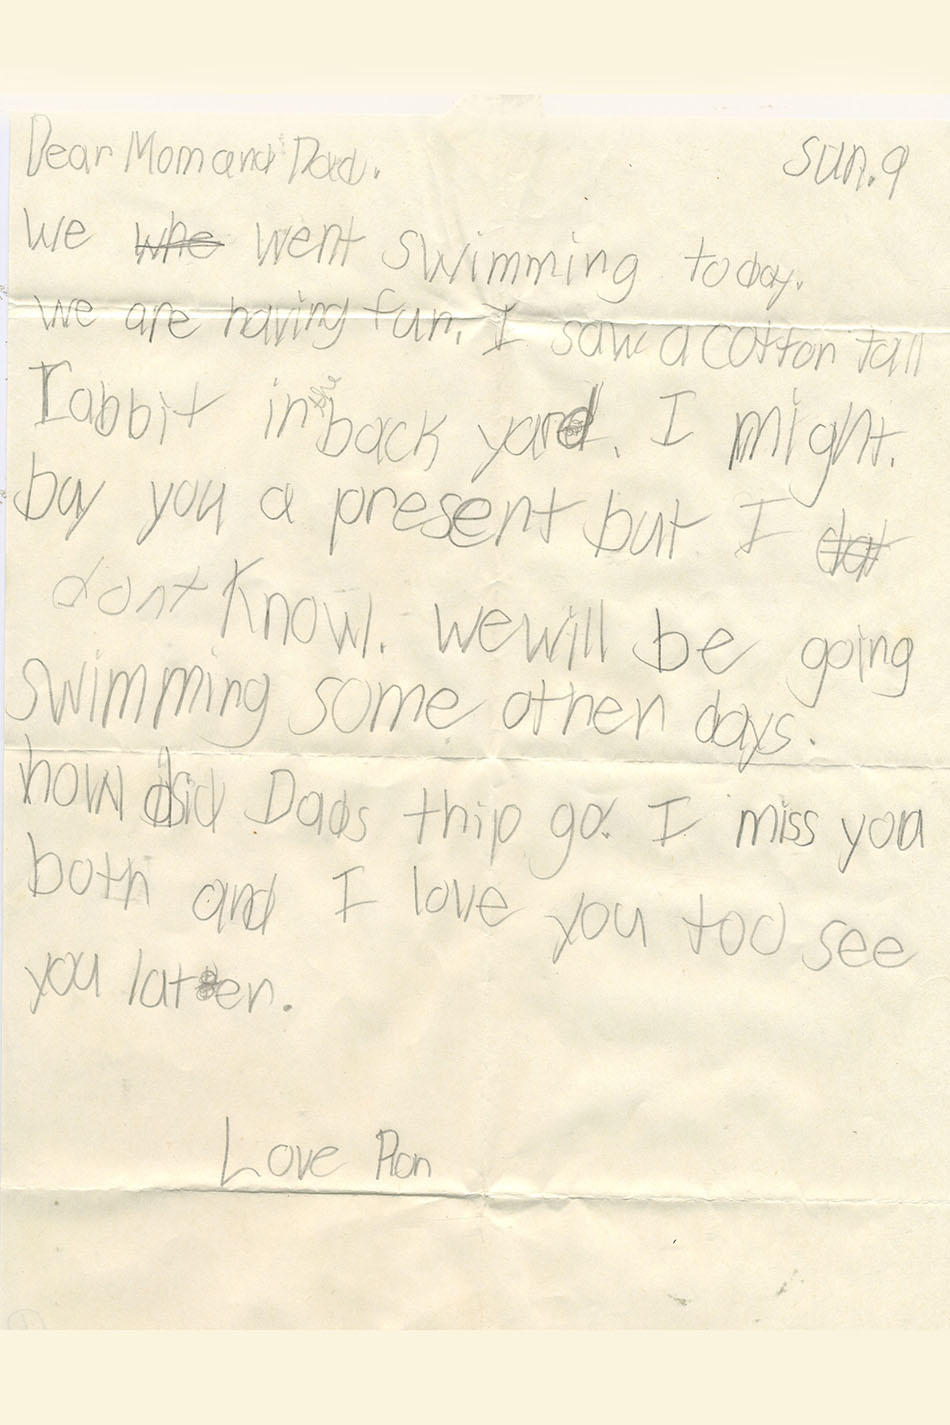 Dear Mom and Dad. Sun. 9
We whe went swimming today.
we are having fun. I saw a cotton tall
rabbit in the back yard. I might.
bay you a present but I dat
dont know. we will be going
swimming some other days.
how did Dads thip go. I miss you
both and I love you too see
you later.
Love Ron